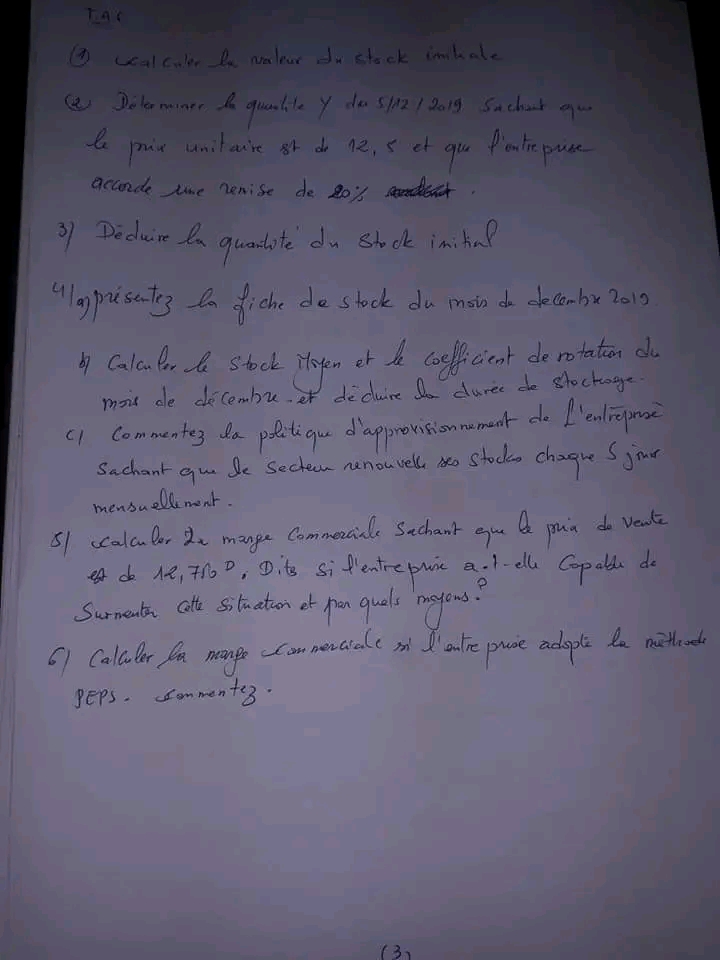 T.A.F
(1) Calculer la valeur du stock initiale
(2) Déterminer la quantité Y du 5/12/2019 sachant que
le prix unitaire est de 12,5 et que l'entreprise
accorde une remise de 20% .
3) Déduire la quantité du stock initial
4/ a) présentez la fiche de stock du mois de decembre 2019
b) Calculer le stock Moyen et le coefficient de rotation du
mois de décembre et déduire la durée de stockage.
c) Commentez la politique d'approvisionnement de l'entreprise
sachant que le secteur renouvelle ses stocks chaque 5 jours
mensuellement.
5) Calculer la marge Commerciale sachant que le prix de vente
est de 12,750 D. Dits si l'entreprise a-t-elle Capable de
Surmenter cette situation et par quels moyens?
6) Calculer la marge commerciale si l'entreprise adopte la méthode
PEPS. Commentez.
(3)